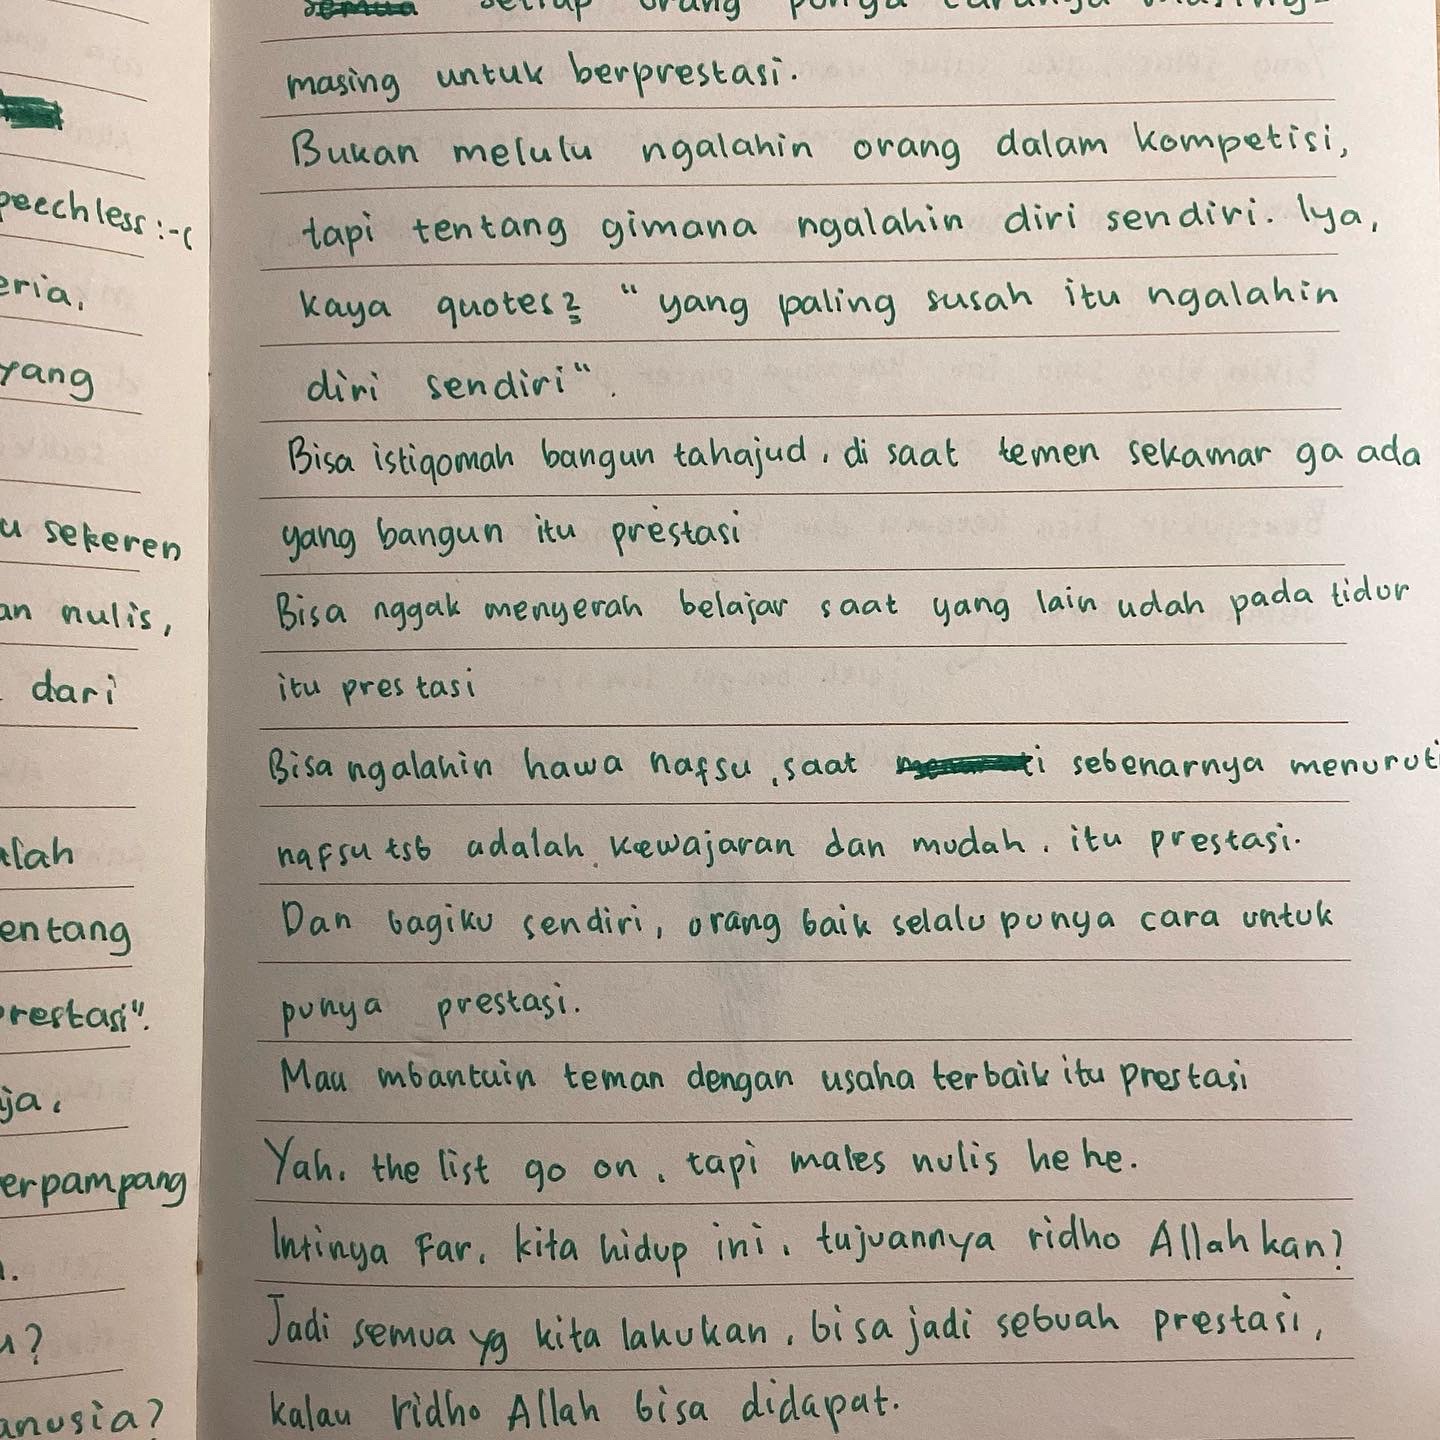 peechless :-(
eria,
yang
u sekeren
an nulis,
dari
alah
entang
prestasi".
ja,
erpampang
u?
anusia?
setiap orang punya caranya masing-
masing untuk berprestasi.
Bukan melulu ngalahin orang dalam kompetisi,
tapi tentang gimana ngalahin diri sendiri. Iya,
kaya quotes2 "yang paling susah itu ngalahin
diri sendiri".
Bisa istiqomah bangun tahajud, di saat temen sekamar ga ada
yang bangun itu prestasi
Bisa nggak menyerah belajar saat yang lain udah pada tidur
itu prestasi
Bisa ngalahin hawa nafsu, saat sebenarnya menuruti
nafsu tsb adalah kewajaran dan mudah, itu prestasi.
Dan bagiku sendiri, orang baik selalu punya cara untuk
punya prestasi.
Mau mbantuin teman dengan usaha terbaik itu prestasi
Yah, the list go on, tapi males nulis hehe.
Intinya Far, kita hidup ini, tujuannya ridho Allah kan?
Jadi semua yg kita lakukan, bisa jadi sebuah prestasi,
kalau ridho Allah bisa didapat.